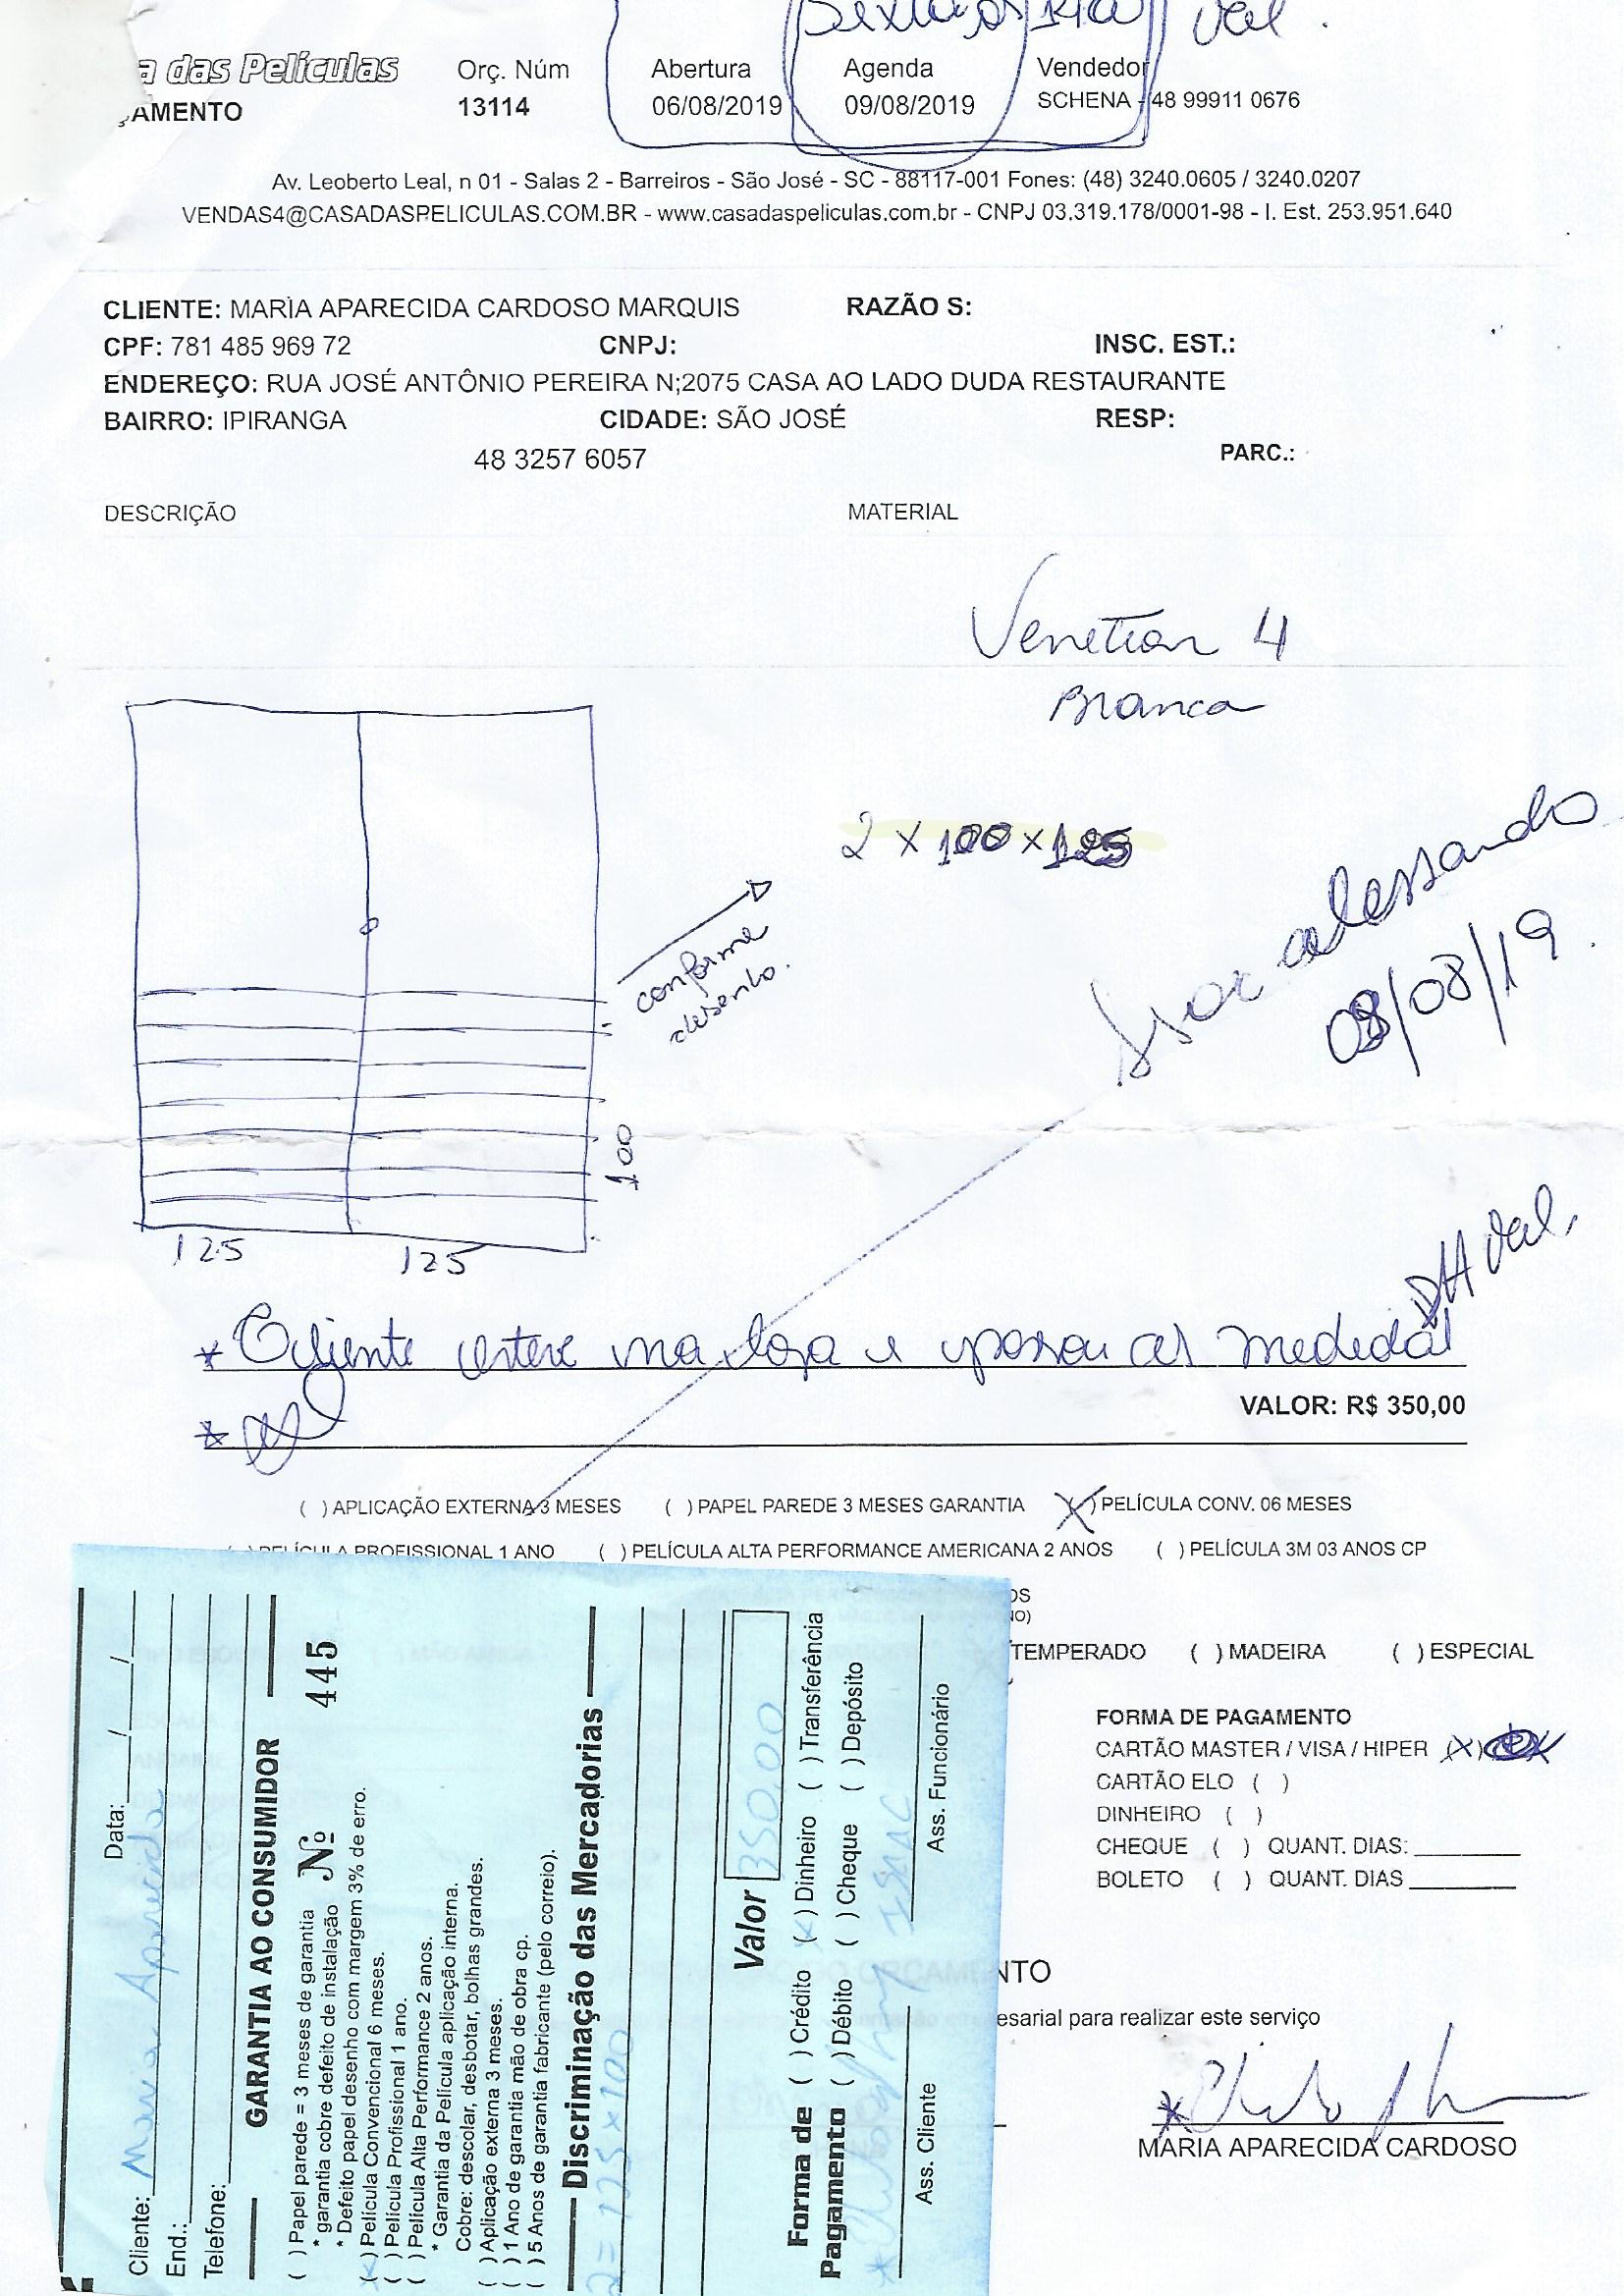 Sexta 14 Val.
a das Películas Orç. Núm Abertura Agenda Vendedor
AMENTO 13114 06/08/2019 09/08/2019 SCHENA - 48 99911 0676
Av. Leoberto Leal, n 01 - Salas 2 - Barreiros - São José - SC - 88117-001 Fones: (48) 3240.0605 / 3240.0207
VENDAS4@CASADASPELICULAS.COM.BR - www.casadaspeliculas.com.br - CNPJ 03.319.178/0001-98 - I. Est. 253.951.640
CLIENTE: MARIA APARECIDA CARDOSO MARQUIS RAZÃO S:
CPF: 781 485 969 72 CNPJ: INSC. EST.:
ENDEREÇO: RUA JOSÉ ANTÔNIO PEREIRA N;2075 CASA AO LADO DUDA RESTAURANTE
BAIRRO: IPIRANGA CIDADE: SÃO JOSÉ RESP:
48 3257 6057 PARC.:
DESCRIÇÃO MATERIAL
Venetian 4
Branca
2 x 100 x 125
conforme
desenho.
alessandro
08/08/19.
100
125 125
Val.
* Cliente esteve na loja e passou as medidas
VALOR: R$ 350,00
*
( ) APLICAÇÃO EXTERNA 3 MESES ( ) PAPEL PAREDE 3 MESES GARANTIA (X) PELÍCULA CONV. 06 MESES
( ) PELÍCULA PROFISSIONAL 1 ANO ( ) PELÍCULA ALTA PERFORMANCE AMERICANA 2 ANOS ( ) PELÍCULA 3M 03 ANOS CP
OS
NO)
TEMPERADO ( ) MADEIRA ( ) ESPECIAL
FORMA DE PAGAMENTO
CARTÃO MASTER / VISA / HIPER (X)
CARTÃO ELO ( )
DINHEIRO ( )
CHEQUE ( ) QUANT. DIAS:
BOLETO ( ) QUANT. DIAS
NTO
esarial para realizar este serviço
*
MARIA APARECIDA CARDOSO
Cliente: Maria Aparecida Data: / /
End.:
Telefone:
GARANTIA AO CONSUMIDOR
( ) Papel parede = 3 meses de garantia Nº 445
* garantia cobre defeito de instalação
* Defeito papel desenho com margem 3% de erro.
(x) Película Convencional 6 meses.
( ) Película Profissional 1 ano.
( ) Película Alta Performance 2 anos.
* Garantia da Película aplicação interna.
Cobre: descolar, desbotar, bolhas grandes.
( ) Aplicação externa 3 meses.
( ) 1 Ano de garantia mão de obra cp.
( ) 5 Anos de garantia fabricante (pelo correio).
Discriminação das Mercadorias
2 = 125 x 100
Valor 350,00
Forma de ( ) Crédito (x) Dinheiro ( ) Transferência
Pagamento ( ) Débito ( ) Cheque ( ) Depósito
* ISAAC
Ass. Cliente Ass. Funcionário